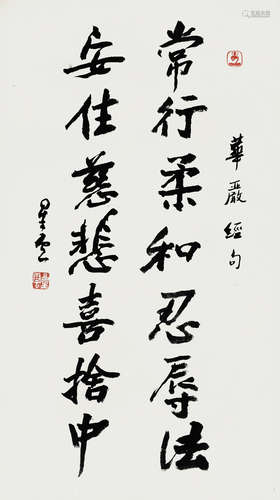 華嚴經句
常行柔和忍辱法
安住慈悲喜捨中
星雲